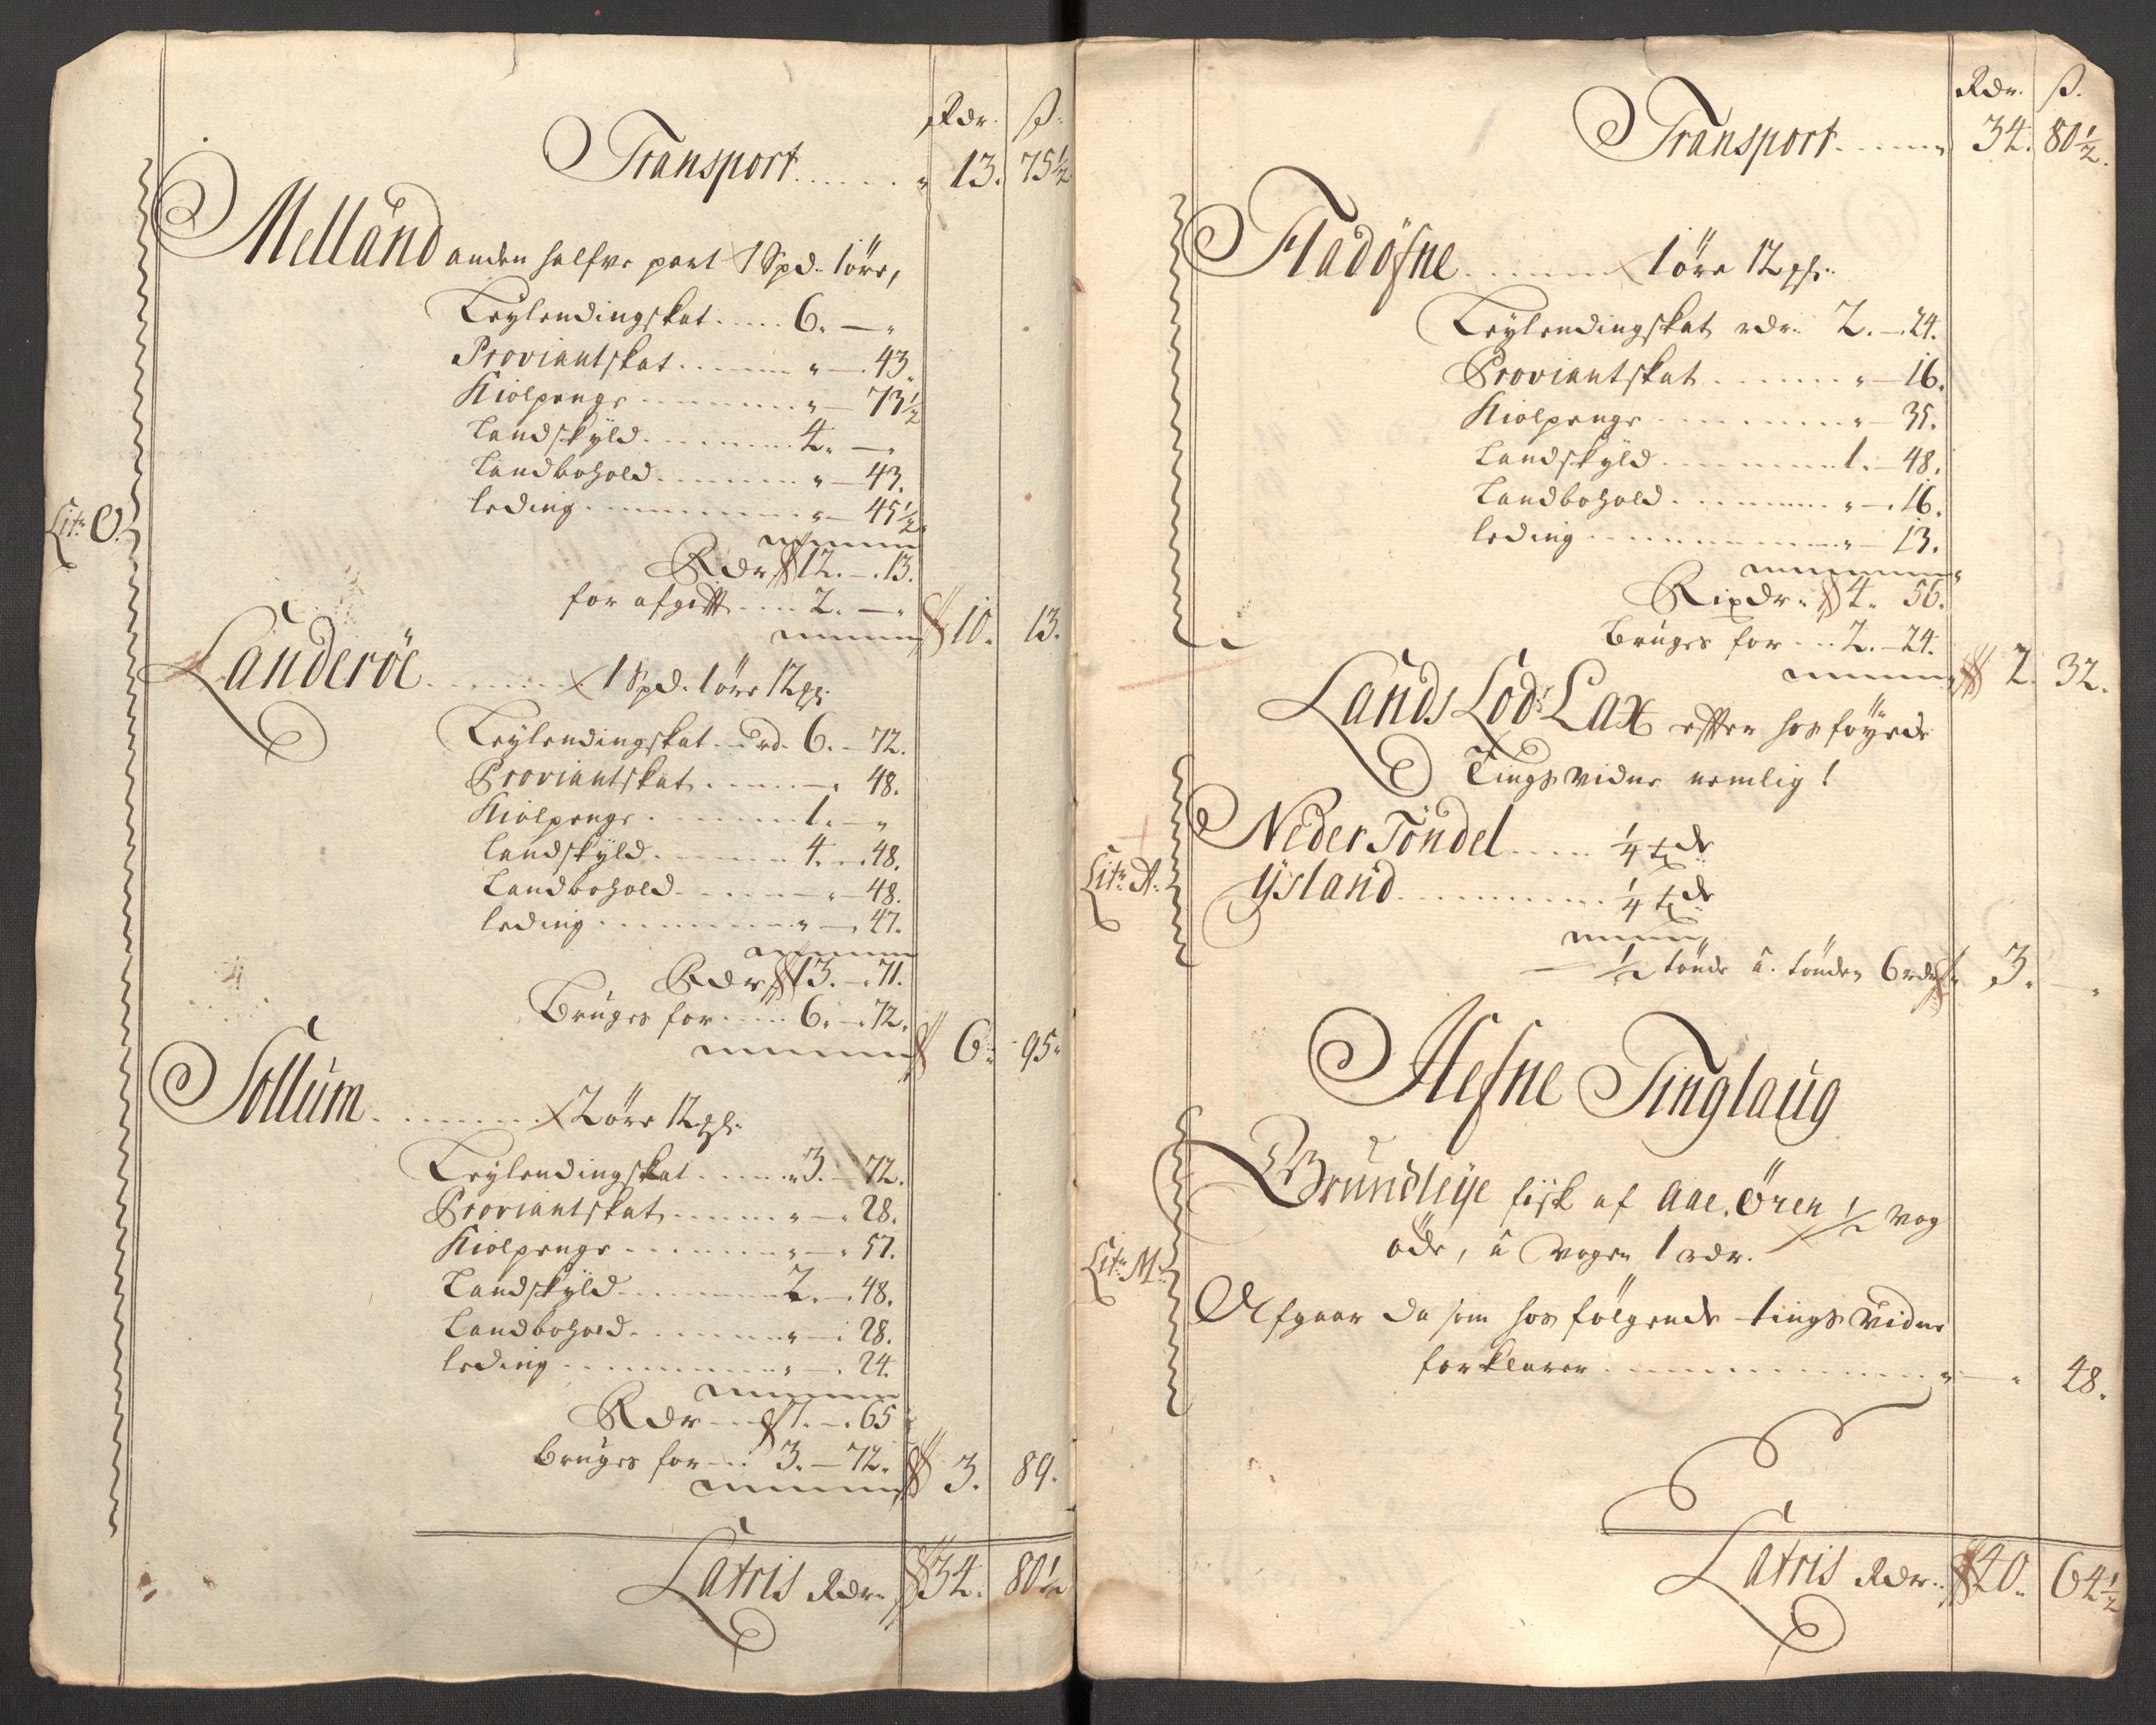 Rdr. ß.
Transport . . . . . „ 13. 75½
Melland anden halfve part 1 Spd. 1 öre,
Leylendingskat . . . . 6. — „
Proviantskat . . . . . „ — 43.
Kiolpenge . . . . . „ — 73½
Landskyld . . . . . 4. — „
Landbohold . . . . . „ — 43.
leding . . . . . „ — 45½
Lit: O.
Rdr 12. — 13.
for afgift . . . 2. — „ 10. 13.
Landeröe . . . . . 1 Spd. 1 öre 12
Leylendingskat . . rd. 6. — 72.
Proviantskat . . . . . 48.
Kiolpenge . . . . . 1. — „
Landskyld . . . . . 4. — 48.
Landbohold . . . . . „ — 48.
leding . . . . . „ — 47.
Rdr 13. — 71.
Bruges for . . . . 6. — 72. 6. 95.
Sollum . . . . . 2 öre 12
Leylendingskat . . . . . 3. — 72.
Proviantskat . . . . . „ — 28.
Kiolpenge . . . . . „ — 57.
Landskyld . . . . . 2. — 48.
Landbohold . . . . . „ — 28.
leding . . . . . „ — 24.
Rdr . . . 7. — 65
bruges for . . . 3. — 72. 3. 89.
Latris Rdr. 34. 80½
Rdr. ß.
Transport . . . . . „ 34. 80½.
Fladöfne . . . . . 1 öre 12
Leylendingskat rdr. 2. — 24.
Proviantskat . . . . . „ — 16.
Kiolpenge . . . . . „ — 35.
Landskyld . . . . . 1. — 48.
Landbohold . . . . . „ — 16.
leding . . . . . „ — 13.
Rixdr. 4. 56.
bruges for . . . 2. — 24. 2. 32.
Lands Lod: Lax efter hos föyede
Tingsvidne nemlig!
Neder Töndel . . . . . ¼ tde
Lit: A.
Ysland . . . . . ¼ tde
½ tönde â tönden 6 rdr 3. — „
Hefne Tinglaug
Grundleye fisk af Aae Ören ½ vog
öde, â vogen 1 rdr.
Lit: M.
Afgaar da som hos fölgende tings vidne
forklarer . . . . . „ — „ 48.
Latris Rdr. 40. 64½